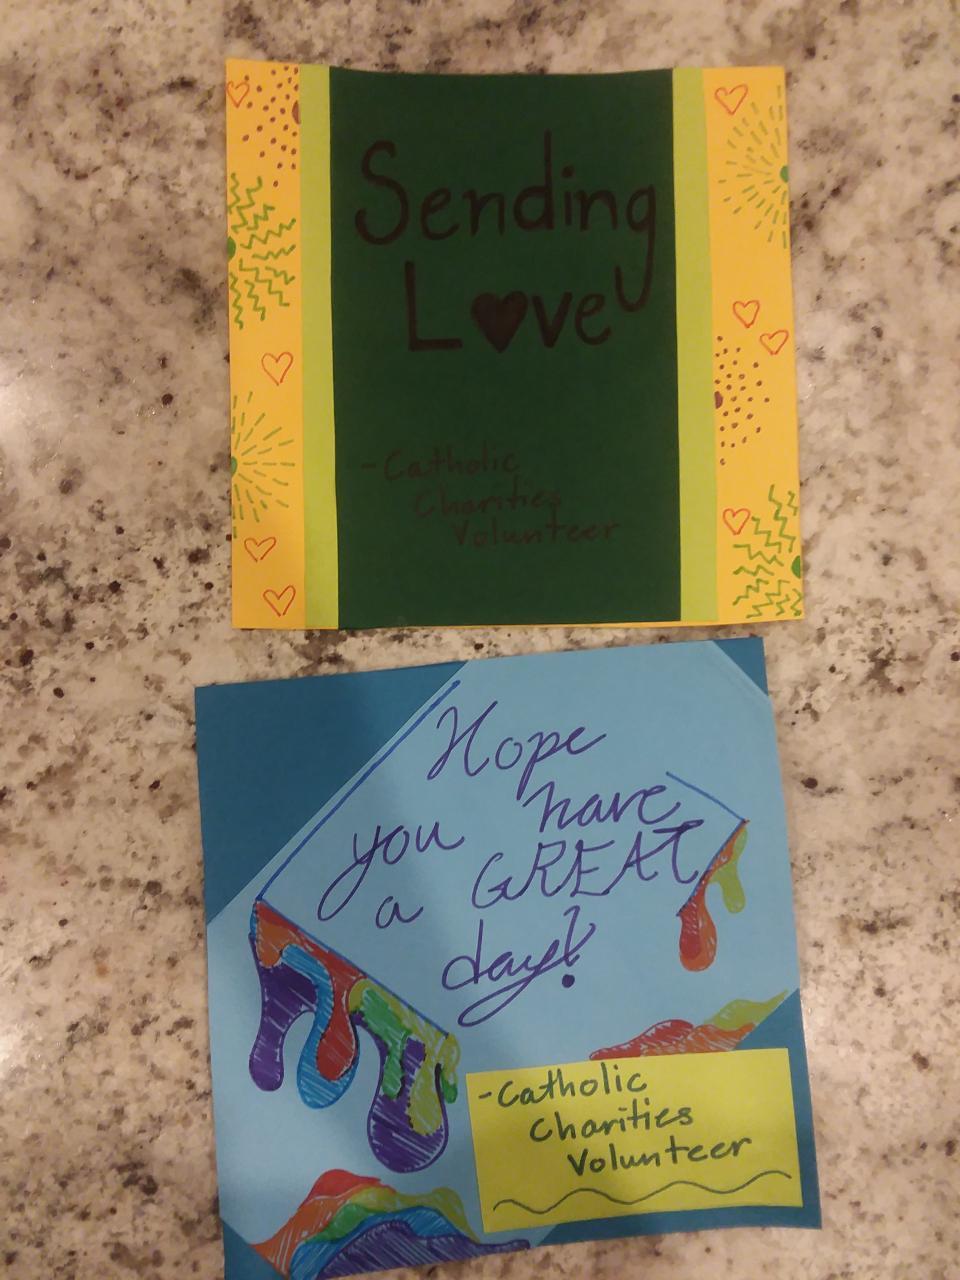 Sending
L♥ve
-Catholic
Charities
Volunteer
Hope
you have
a GREAT
day!
-Catholic
Charities
Volunteer